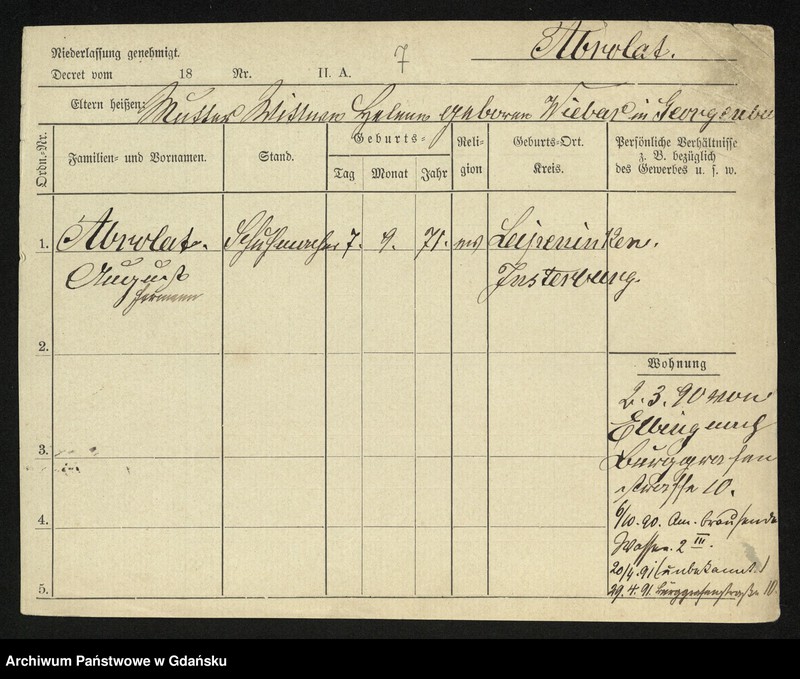 Abrolat.
Niederlassung genehmigt.
7
Decret vom 18 Nr. II. A.
Eltern heißen: Mutter Wittwe Helene geboren in
Ordn.-Nr.
Familien- und Vornamen.
Stand.
Geburts-
Tag Monat Jahr
Reli-
gion
Geburts-Ort.
Kreis.
Persönliche Verhältnisse
z. B. bezüglich
des Gewerbes u. s. w.
1. Abrolat. Schuhmacher 7. 9. 71. ev
August Insterburg.
Hermann
2.
Wohnung
2. 3. 90 von
Elbing nach
3. Burggrafen
strasse 10.
4. 6/10. 90. Am. brausende
Wasser. 2 III.
20/4. 91 (unbekannt.)
5. 29. 4. 91. Burggrafenstraße 10.
Archiwum Państwowe w Gdańsku